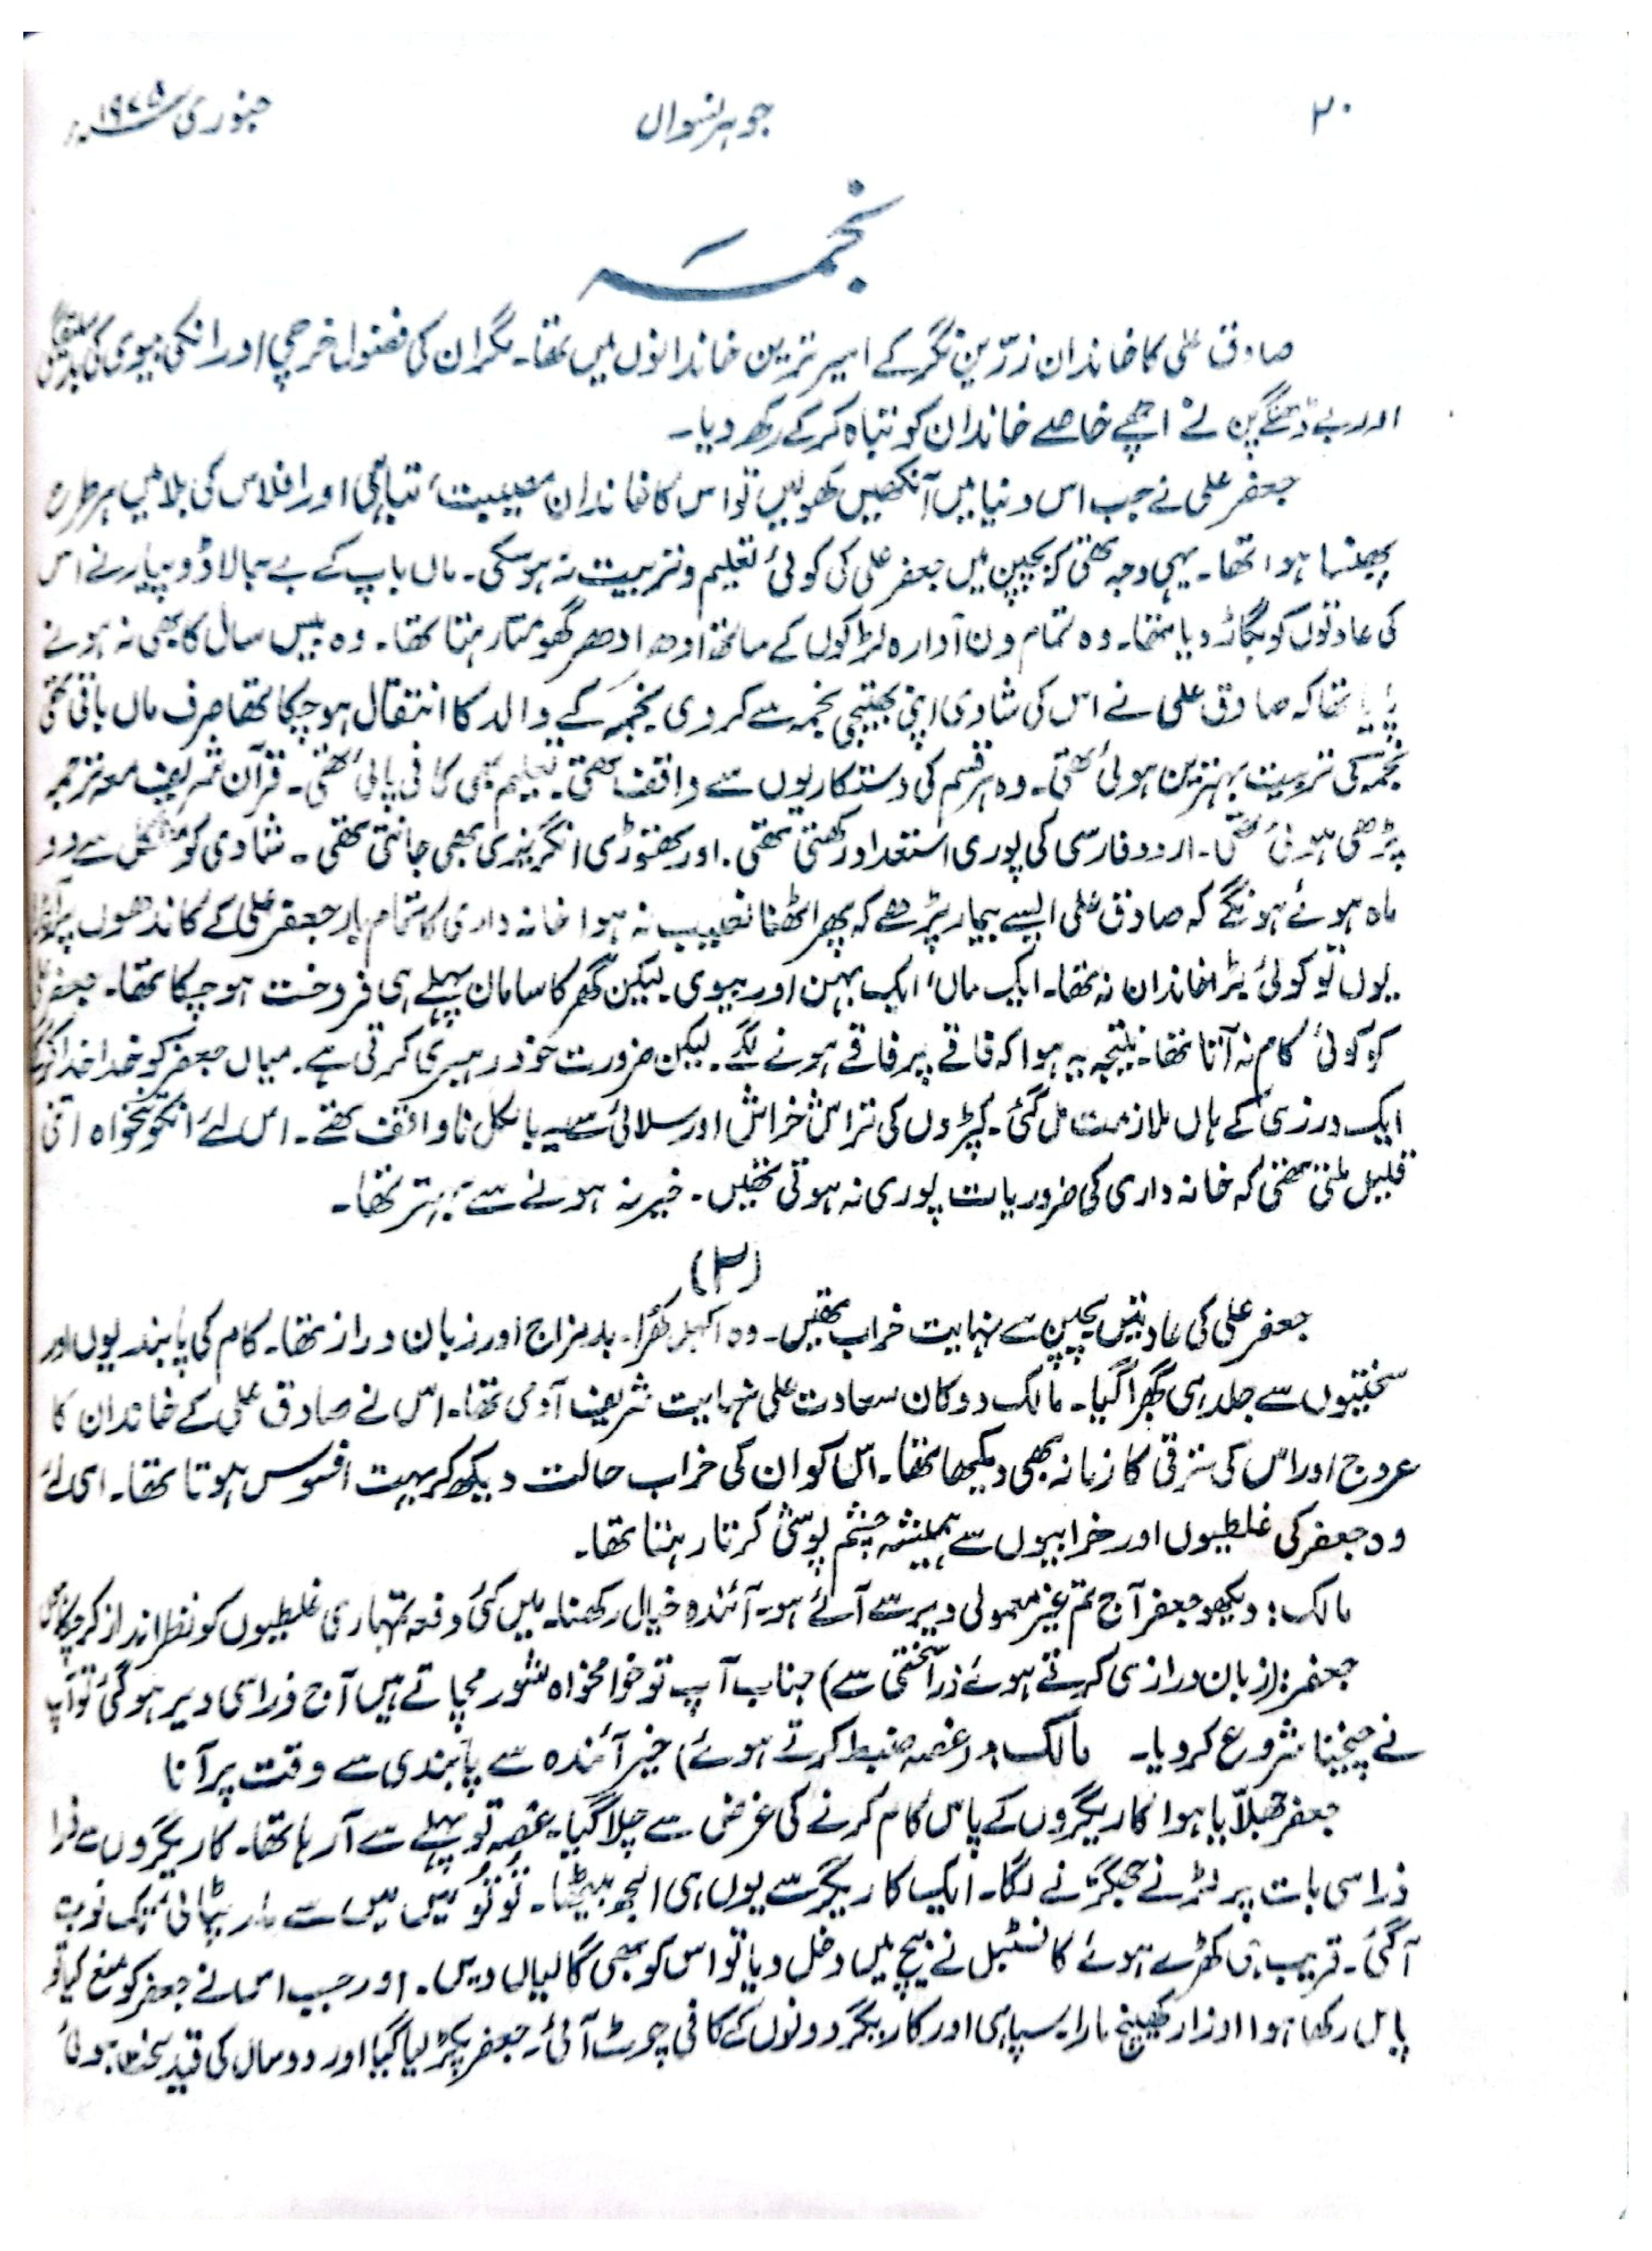 ۲۰ جوہر نسواں جنوری ۱۹۴۵ء
نجمہ
صادق علی کا خاندان زرّین نگر کے امیر ترین خاندانوں میں تھا۔ مگر ان کی فضول خرچی اور انکی بیوی کی بدسلیقگی
اور بے ڈھنگے پن نے اچھے خاصے خاندان کو تباہ کر کے رکھ دیا۔
جعفر علی نے جب اس دنیا میں آنکھیں کھولیں تو اس کا خاندان مصیبت، تباہی اور افلاس کی بلا میں ہر طرح
پھنسا ہوا تھا۔ یہی وجہ تھی کہ بچپن میں جعفر علی کی کوئی تعلیم و تربیت نہ ہو سکی۔ ماں باپ کے بے جا لاڈ و پیار نے اس
کی عادتوں کو بگاڑ دیا تھا۔ وہ تمام دن آوارہ لڑکوں کے ساتھ اودھر ادھر گھومتا رہتا تھا۔ وہ بیس سال کا بھی نہ ہونے
پایا تھا کہ صادق علی نے اس کی شادی اپنی بھتیجی نجمہ سے کر دی۔ نجمہ کے والد کا انتقال ہو چکا تھا صرف ماں باقی تھی
نجمہ کی تربیت بہترین ہوئی تھی۔ وہ ہر قسم کی دستکاریوں سے واقف تھی۔ تعلیم بھی کافی پائی تھی۔ قرآن شریف معہ ترجمہ
پڑھی ہوئی تھی۔ اردو فارسی کی پوری استعداد رکھتی تھی۔ اور تھوڑی انگریزی بھی جانتی تھی۔ شادی کو مشکل سے دو
ماہ ہوئے ہونگے کہ صادق علی ایسے بیمار پڑے کہ پھر اٹھنا نصیب نہ ہوا خانہ داری کا تمام بار جعفر علی کے کاندھوں پر
یوں تو کوئی بڑا خاندان نہ تھا۔ ایک ماں، ایک بہن اور بیوی۔ لیکن گھر کا سامان پہلے ہی فروخت ہو چکا تھا۔ جعفر علی
کو کوئی کام نہ آتا تھا۔ نتیجہ یہ ہوا کہ فاقے پر فاقے ہونے لگے۔ لیکن ضرورت خود رہبری کرتی ہے۔ میاں جعفر کو خدا خدا کرکے
ایک درزی کے ہاں ملازمت مل گئی۔ کپڑوں کی تراش خراش اور سلائی سے یہ بالکل ناواقف تھے۔ اس لئے انکو تنخواہ اتنی
قلیل ملتی تھی کہ خانہ داری کی ضروریات پوری نہ ہوتی تھیں۔ خیر نہ ہونے سے بہتر تھا۔
(۲)
جعفر علی کی عادتیں بچپن سے نہایت خراب تھیں۔ وہ اکھڑ، بدمزاج اور زبان دراز تھا۔ کام کی پابندیوں اور
سختیوں سے جلد ہی گھبرا گیا۔ مالک دوکان سعادت علی نہایت شریف آدمی تھا۔ اس نے صادق علی کے خاندان کا
عروج اور اس کی ترقی کا زمانہ بھی دیکھا تھا۔ اس کو ان کی خراب حالت دیکھ کر بہت افسوس ہوتا تھا۔ اسی لئے
وہ جعفر کی غلطیوں اور خرابیوں سے ہمیشہ چشم پوشی کرتا رہتا تھا۔
مالک: دیکھو جعفر آج تم غیر معمولی دیر سے آئے ہو۔ آئندہ خیال رکھنا۔ میں کئی دفعہ تمہاری غلطیوں کو نظر انداز کر چکا ہوں
جعفر: (زبان درازی کرتے ہوئے ذرا سختی سے) جناب آپ تو خوا مخواہ شور مچاتے ہیں آج ذرا سی دیر ہو گئی تو آپ
نے چیخنا شروع کر دیا۔ مالک: (غصہ ضبط کرتے ہوئے) خیر آئندہ سے پابندی سے وقت پر آنا
جعفر جھلّایا ہوا کاریگروں کے پاس کام کرنے کی غرض سے چلا گیا۔ غصہ تو پہلے سے آ رہا تھا۔ کاریگروں سے ذرا
ذرا سی بات پر لڑنے جھگڑنے لگا۔ ایک کاریگر سے یوں ہی الجھ بیٹھا۔ تُو تُو میں میں سے مار پٹائی تک نوبت
آگئی۔ قریب ہی کھڑے ہوئے کانسٹبل نے بیچ میں دخل دیا تو اس کو بھی گالیاں دیں۔ اور جب اس نے جعفر کو منع کیا تو
پاس رکھا ہوا اوزار کھینچ مارا۔ سپاہی اور کاریگر دونوں کے کافی چوٹ آئی۔ جعفر پکڑ لیا گیا اور دو سال کی قید سخت ہوئی